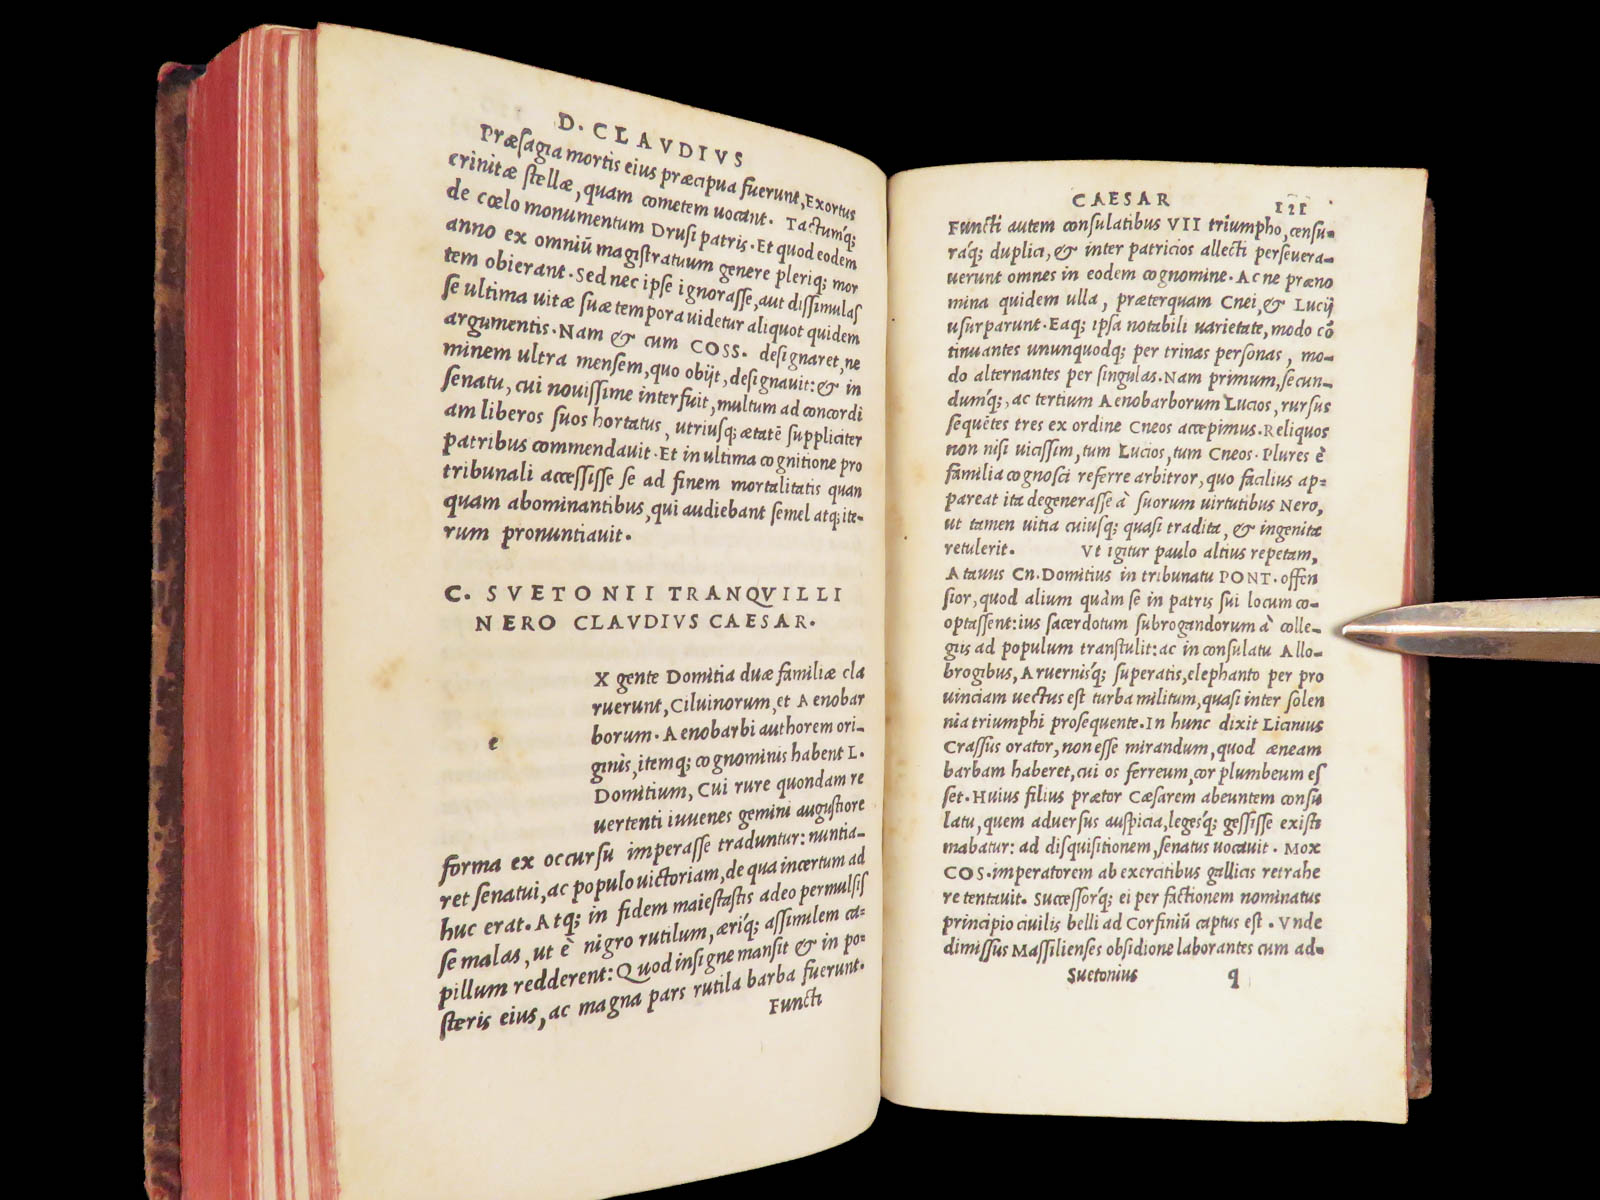 D. CLAVDIVS
Præsagia mortis eius præcipua fuerunt, Exortus
crinitæ stellæ, quam cometem uocant. Tactumq́;
de cœlo monumentum Drusi patris. Et quod eodem
anno ex omniũ magistratuum genere pleriq; mor
tem obierant. Sed nec ipse ignorasse, aut dissimulas
se ultima uitæ suæ tempora uidetur aliquot quidem
argumentis. Nam & cum COSS. designaret, ne
minem ultra mensem, quo obijt, designauit: & in
senatu, cui nouissime interfuit, multum ad concordi
am liberos suos hortatus, utriusq; ætatẽ suppliciter
patribus commendauit. Et in ultima cognitione pro
tribunali accessisse se ad finem mortalitatis quan
quam abominantibus, qui audiebant semel atq; ite-
rum pronuntiauit.
C. SVETONII TRANQVILLI
NERO CLAVDIVS CAESAR.
e
X gente Domitia duæ familiæ cla
ruerunt, Ciluinorum, et Aenobar
borum. Aenobarbi authorem ori-
ginis, itemq; cognominis habent L.
Domitium, Cui rure quondam re
uertenti iuuenes gemini augustiore
forma ex occursu imperasse traduntur: nuntia-
ret senatui, ac populo uictoriam, de qua incertum ad
huc erat. Atq; in fidem maiestastis adeo permulsis
se malas, ut è nigro rutilum, æriq́; assimulem ca-
pillum redderent: Quod insigne mansit & in po-
steris eius, ac magna pars rutila barba fuerunt.
Functi
CAESAR 121
Functi autem consulatibus VII triumpho, censu-
raq́; duplici, & inter patricios allecti perseuera-
uerunt omnes in eodem cognomine. Ac ne præno
mina quidem ulla, præterquam Cnei, & Lucij
usurparunt. Eaq; ipsa notabili varietate, modo cõ
tinuantes ununquodq; per trinas personas, mo-
do alternantes per singulas. Nam primum, secun-
dumq́;, ac tertium Aenobarborum Lucios, rursus
sequẽtes tres ex ordine Cneos accepimus. Reliquos
non nisi uicissim, tum Lucios, tum Cneos. Plures è
familia cognosci referre arbitror, quo facilius ap-
pareat ita degenerasse à suorum uirtutibus Nero,
ut tamen uitia cuiusq; quasi tradita, & ingenita
retulerit. Vt igitur paulo altius repetam,
Atauus Cn. Domitius in tribunatu PONT. offen
sior, quod alium quàm se in patris sui locum co-
optassent: ius sacerdotum subrogandorum à colle-
giis ad populum transtulit: ac in consulatu Allo-
brogibus, Aruernisq́; superatis, elephanto per pro
uinciam uectus est turba militum, quasi inter solen
nia triumphi prosequente. In hunc dixit Licinius
Crassus orator, non esse mirandum, quod æneam
barbam haberet, cui os ferreum, cor plumbeum es
set. Huius filius prætor Cæsarem abeuntem consu
latu, quem aduersus auspicia, legesq́; gessisse existi
mabatur: ad disquisitionem, senatus uocauit. Mox
COS. imperatorem ab exercitibus gallicis retrahe
re tentauit. Successorq́; ei per factionem nominatus
principio ciuilis belli ad Corfiniũ captus est. Vnde
dimissus Massilienses obsidione laborantes cum ad-
Suetonius q